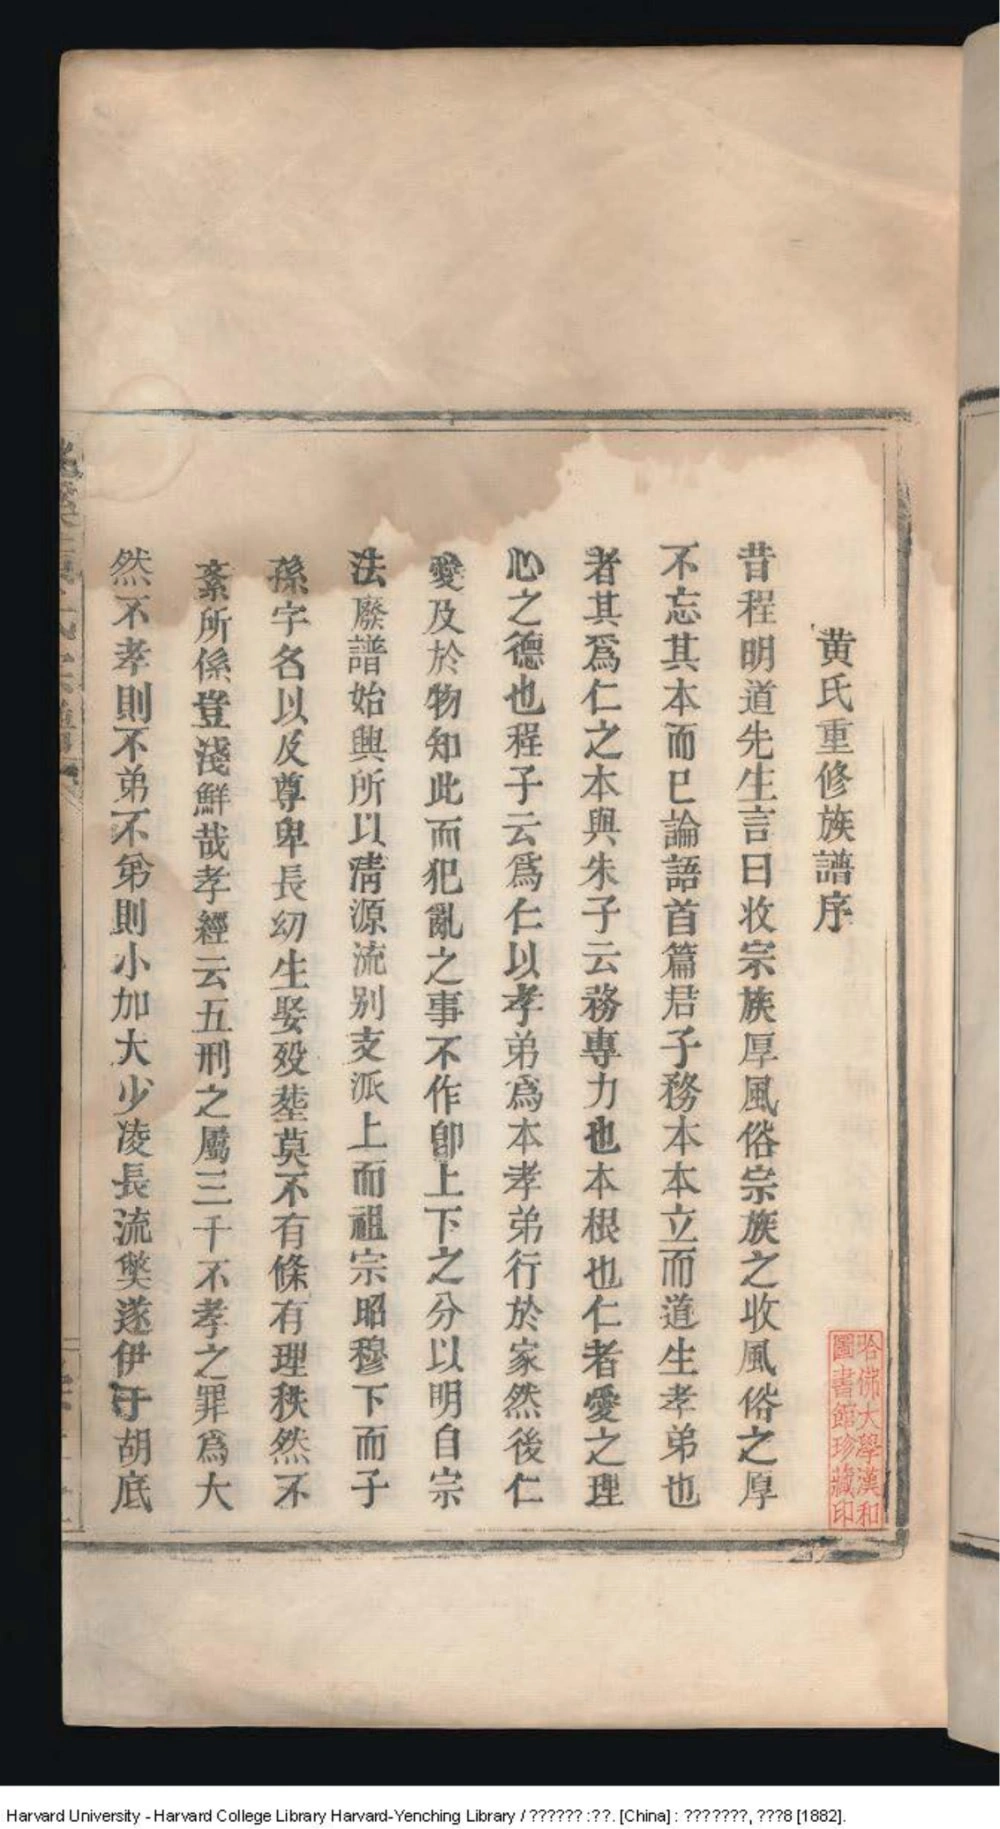 黄氏重修族譜序
昔程明道先生言曰收宗族厚風俗宗族之收風俗之厚
不忘其本而已論語首篇君子務本本立而道生孝弟也
者其爲仁之本與朱子云務專力也本根也仁者愛之理
心之德也程子云爲仁以孝弟爲本孝弟行於家然後仁
愛及於物知此而犯亂之事不作卽上下之分以明自宗
法廢譜始興所以清源流别支派上而祖宗昭穆下而子
孫字名以及尊卑長幼生娶歿塟莫不有條有理秩然不
紊所係登淺鮮哉孝經云五刑之屬三千不孝之罪爲大
然不孝則不弟不弟則小加大少凌長流獘遂伊于胡底
哈佛大學漢和
圖書館珍藏印
Harvard University - Harvard College Library Harvard-Yenching Library / ?????? :??. [China] : ???????, ???8 [1882].